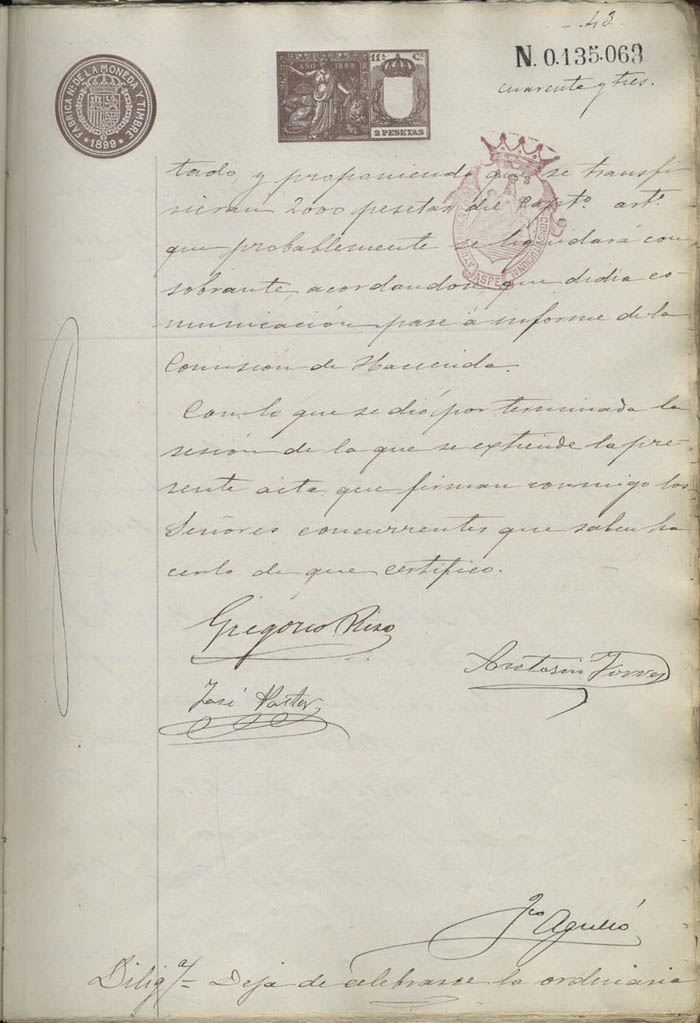 43
N. 0.135.063
cuarenta y tres.
FABRICA Nal DE LA MONEDA Y TIMBRE
1899
AÑO 1899
11ª C.
2 PESETAS
AYUNTAMIENTO CONSTITUCIONAL
ASPE
tado, y proponiendo que se transfi
rieran 2000 pesetas del Capto. arto.
que probablemente se liquidará con
sobrante, acordandose que dicha co-
municación pase á informe de la
Comisión de Hacienda.
Con lo que se dió por terminada la
sesión de la que se extiende la pre-
sente acta que firman conmigo los
Señores concurrentes que saben ha
cerlo de que certifico.
Gregorio Rizo
Antonio Torres
José Pastor
Fco Agulló
Diligª = Deja de celebrarse la ordinaria